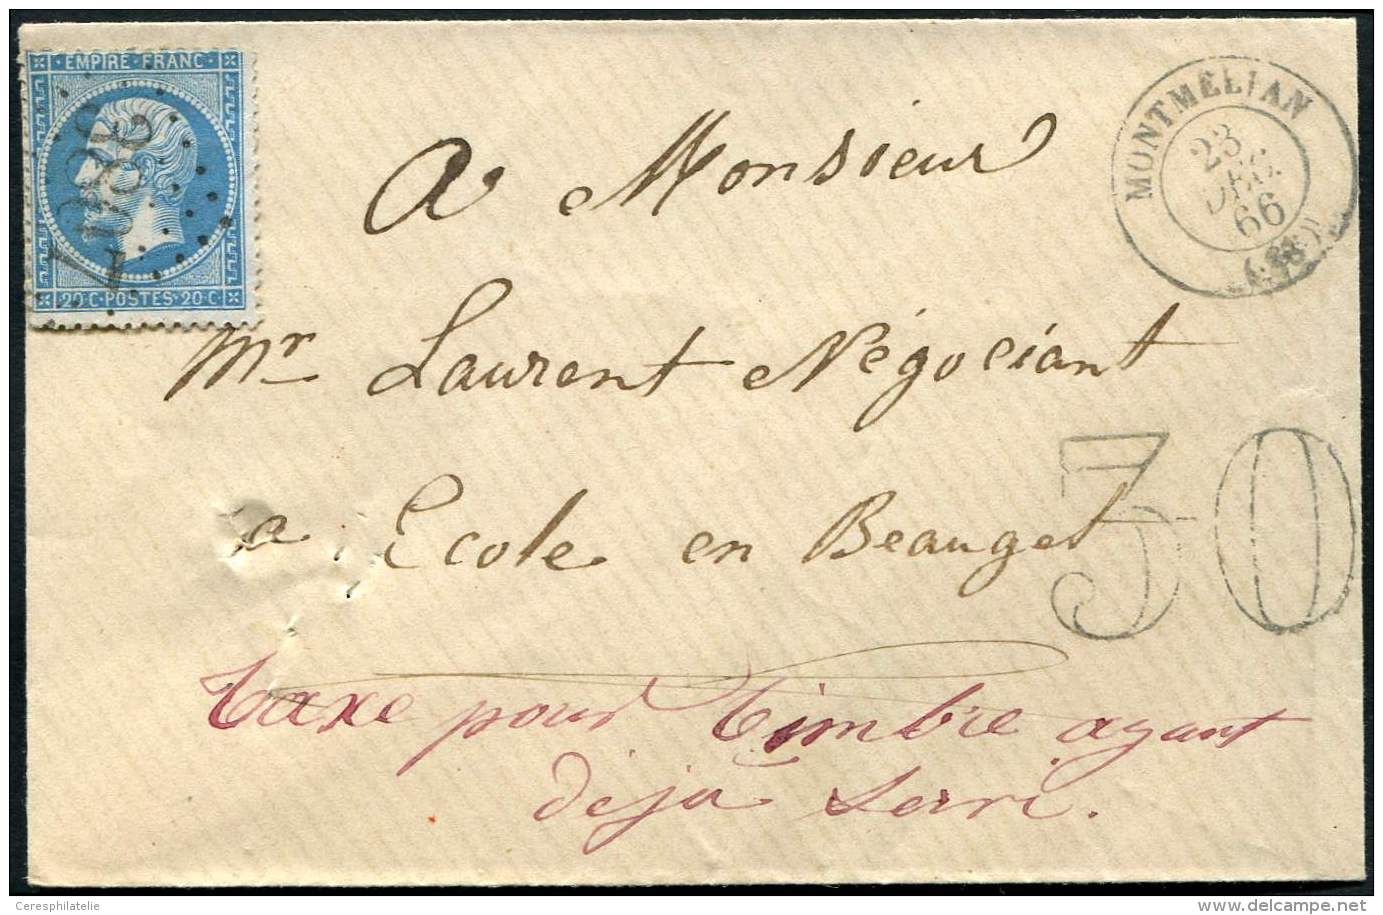 EMPIRE · FRANC ·
20 · C · POSTES · 20 · C
MONTMELIAN
23
DEC.
66
(88)
A Monsieur
Mr Laurent Négociant
a Ecole en Beauget
30
taxe pour timbre ayant
déja servi.
Ceresphilatelie
www.delcampe.net